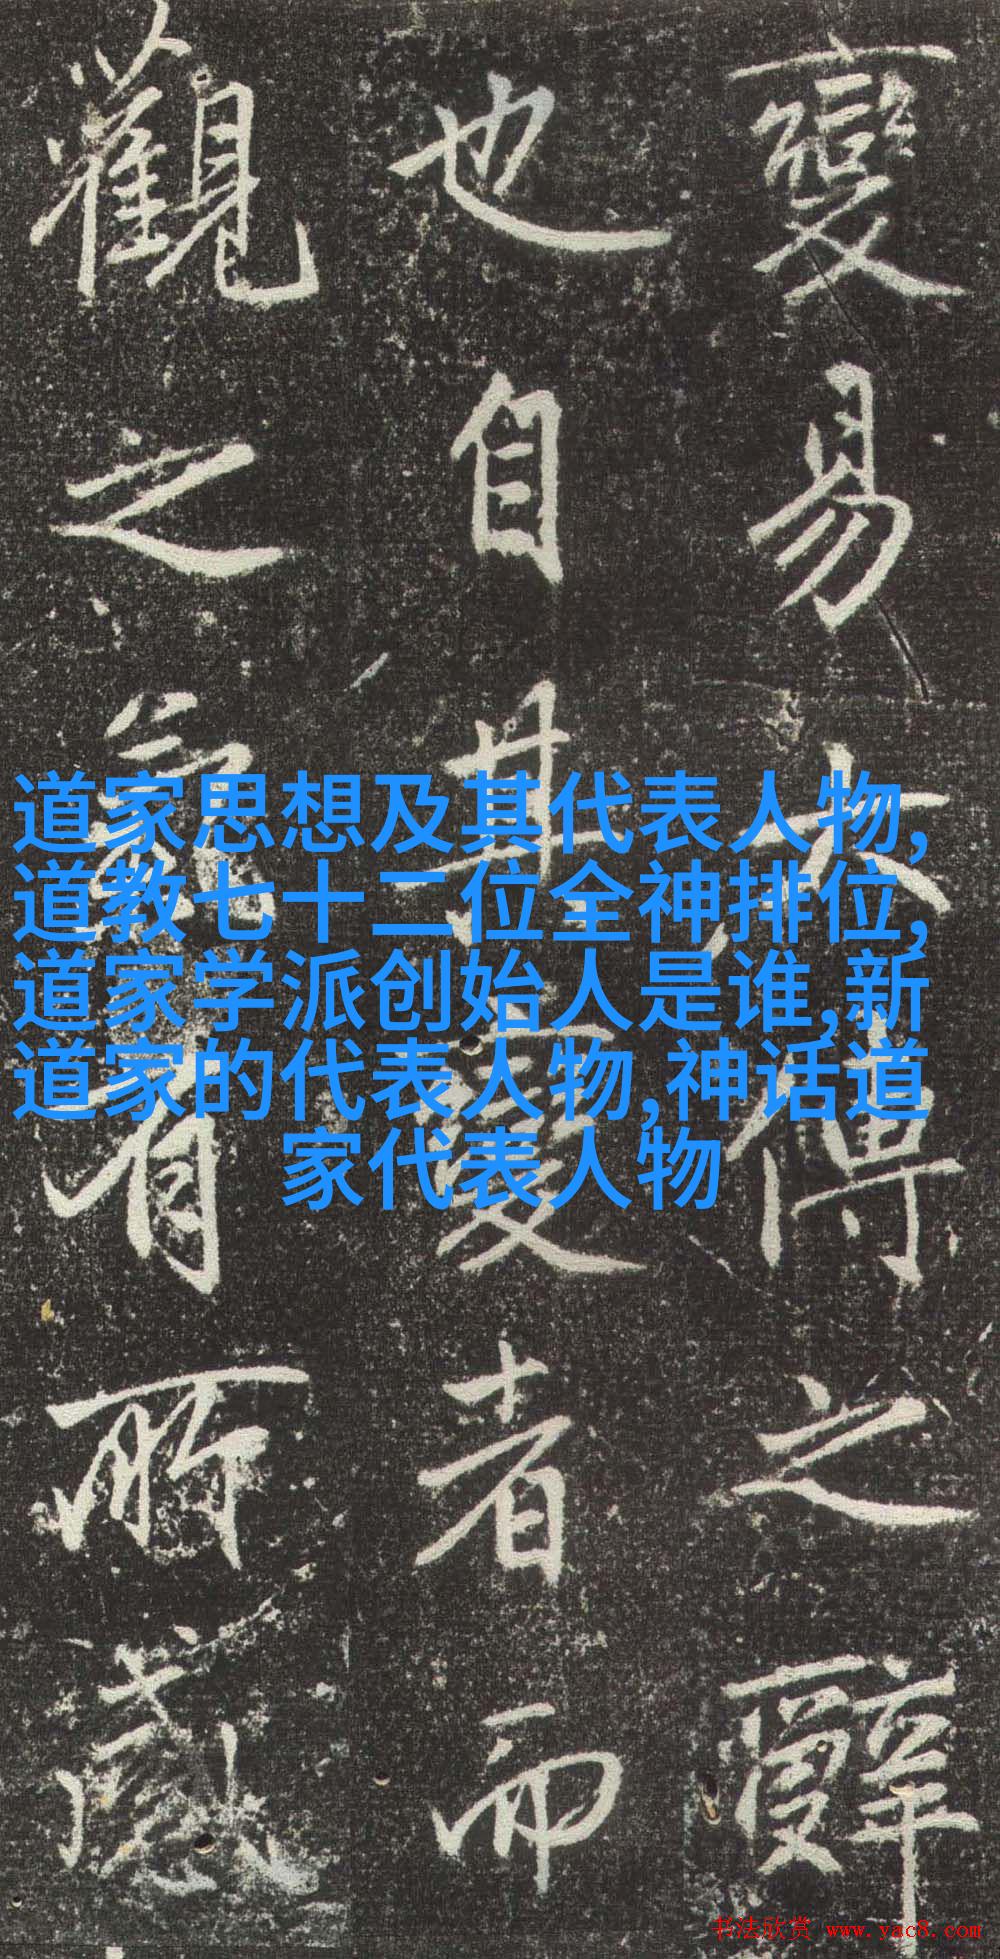 變易大傳之辭
也自其變者而
觀之有所感
道家思想及其代表人物,
道教七十二位全神排位,
道家学派创始人是谁,新
道家的代表人物,神话道
家代表人物
书法欣赏 www.yac8.com